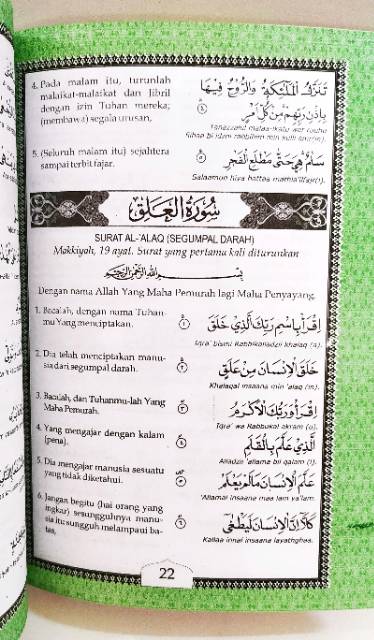 4. Pada malam itu, turunlah
malaikat-malaikat dan Jibril
dengan izin Tuhan mereka;
(membawa) segala urusan.
تَنَزَّلُ الْمَلٰٓئِكَةُ وَالرُّوْحُ فِيْهَا
بِاِذْنِ رَبِّهِمْ مِنْ كُلِّ اَمْرٍ
٤
Tanazzalul malaa-ikatu war ruuhu
fiihaa bi idzni rabbihim min kulli amr(in).
5. (Seluruh malam itu) sejahtera
sampai terbit fajar.
سَلٰمٌ هِيَ حَتّٰى مَطْلَعِ الْفَجْرِ
٥
Salaamun hiya hattaa mathla'ilfajr(i).
سُوْرَةُ الْعَلَقِ
SURAT AL-'ALAQ (SEGUMPAL DARAH)
Makkiyah, 19 ayat. Surat yang pertama kali diturunkan
بِسْمِ اللّٰهِ الرَّحْمٰنِ الرَّحِيْمِ
Dengan nama Allah Yang Maha Pemurah lagi Maha Penyayang
1. Bacalah, dengan nama Tuhan-
mu Yang menciptakan.
اِقْرَأْ بِاسْمِ رَبِّكَ الَّذِيْ خَلَقَ
١
Iqra' bismi Rabbikalladzii khalaq (a).
2. Dia telah menciptakan manu-
sia dari segumpal darah.
خَلَقَ الْاِنْسَانَ مِنْ عَلَقٍ
٢
Khalaqal insaana min 'alaq (in).
3. Bacalah, dan Tuhanmu-lah Yang
Maha Pemurah.
اِقْرَأْ وَرَبُّكَ الْاَكْرَمُ
٣
Iqra' wa Rabbukal akram (u).
4. Yang mengajar dengan kalam
(pena).
الَّذِيْ عَلَّمَ بِالْقَلَمِ
٤
Alladzii 'allama bil qalam (i).
5. Dia mengajar manusia sesuatu
yang tidak diketahui.
عَلَّمَ الْاِنْسَانَ مَالَمْ يَعْلَمْ
٥
'Allamal insaana maa lam ya'lam.
6. Jangan begitu (hai orang yang
ingkar) sesungguhnya manu-
sia itu sungguh melampaui ba-
tas,
كَلَّآ اِنَّ الْاِنْسَانَ لَيَطْغٰى
٦
Kallaa innal insaana layathghaa.
22